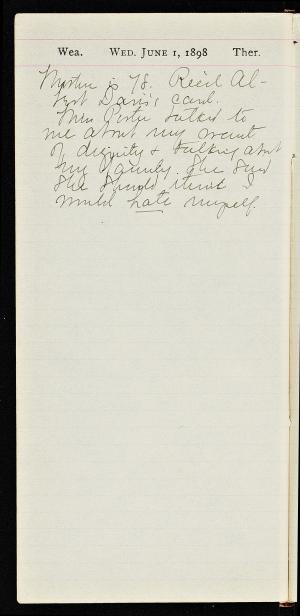 Wea. WED. JUNE 1, 1898 Ther.
is 78. Rec'd Al-
bert Davis's card.
Miss Porter talked to
me about my want
of dignity & talking about
my family. She said
she should think I
would hate myself.